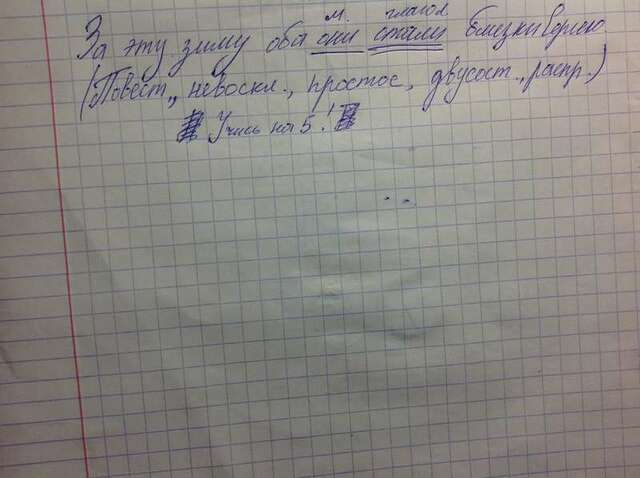 м. глагол
За эту зиму оба они стали близки Сергею.
(Повест., невоскл., простое, двусост., распр.)
Учись на 5!